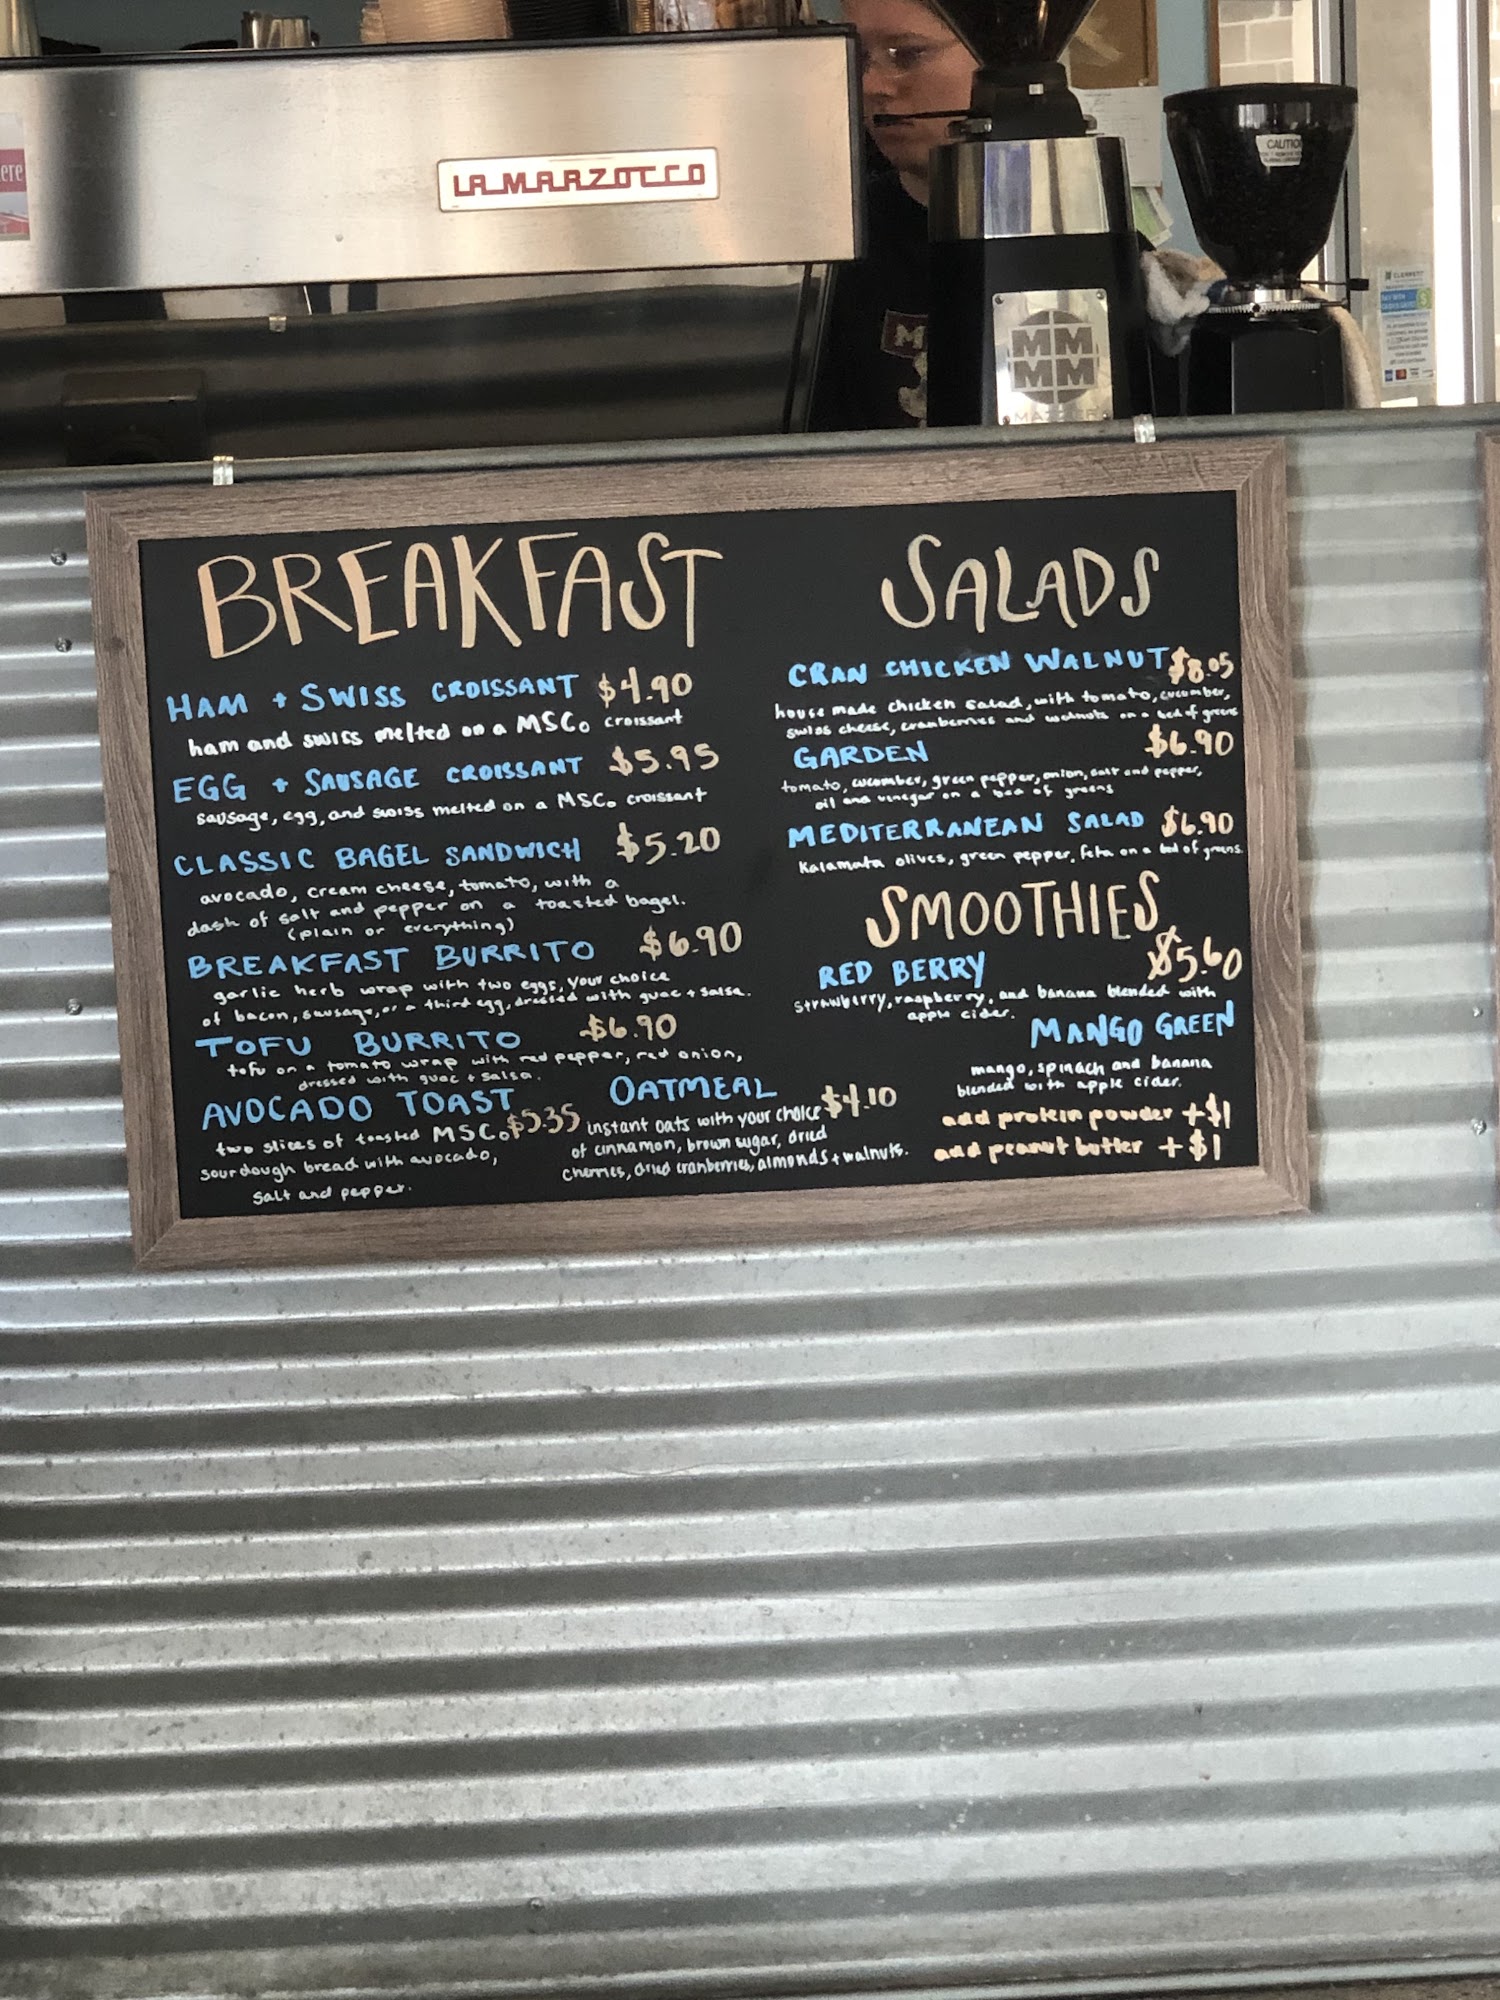 LA MARZOCCO
CAUTION
MM
MM
MAZZER
BREAKFAST
HAM + SWISS CROISSANT $4.90
ham and swiss melted on a MSCo croissant
EGG + SAUSAGE CROISSANT $5.95
sausage, egg, and swiss melted on a MSCo croissant
CLASSIC BAGEL SANDWICH $5.20
avocado, cream cheese, tomato, with a
dash of salt and pepper on a toasted bagel.
(plain or everything)
BREAKFAST BURRITO $6.90
garlic herb wrap with two eggs, your choice
of bacon, sausage, or a third egg, dressed with guac + salsa.
TOFU BURRITO $6.90
tofu on a tomato wrap with red pepper, red onion,
dressed with guac + salsa.
AVOCADO TOAST $5.35
two slices of toasted MSCo
sourdough bread with avocado,
salt and pepper.
OATMEAL $4.10
instant oats with your choice
of cinnamon, brown sugar, dried
cherries, dried cranberries, almonds + walnuts.
SALADS
CRAN CHICKEN WALNUT $8.05
house made chicken salad, with tomato, cucumber,
swiss cheese, cranberries and walnuts on a bed of greens
GARDEN $6.90
tomato, cucumber, green pepper, onion, salt and pepper,
oil and vinegar on a bed of greens
MEDITERRANEAN SALAD $6.90
Kalamata olives, green pepper, feta on a bed of greens.
SMOOTHIES
$5.60
RED BERRY
strawberry, raspberry, and banana blended with
apple cider.
MANGO GREEN
mango, spinach and banana
blended with apple cider.
add protein powder +$1
add peanut butter +$1